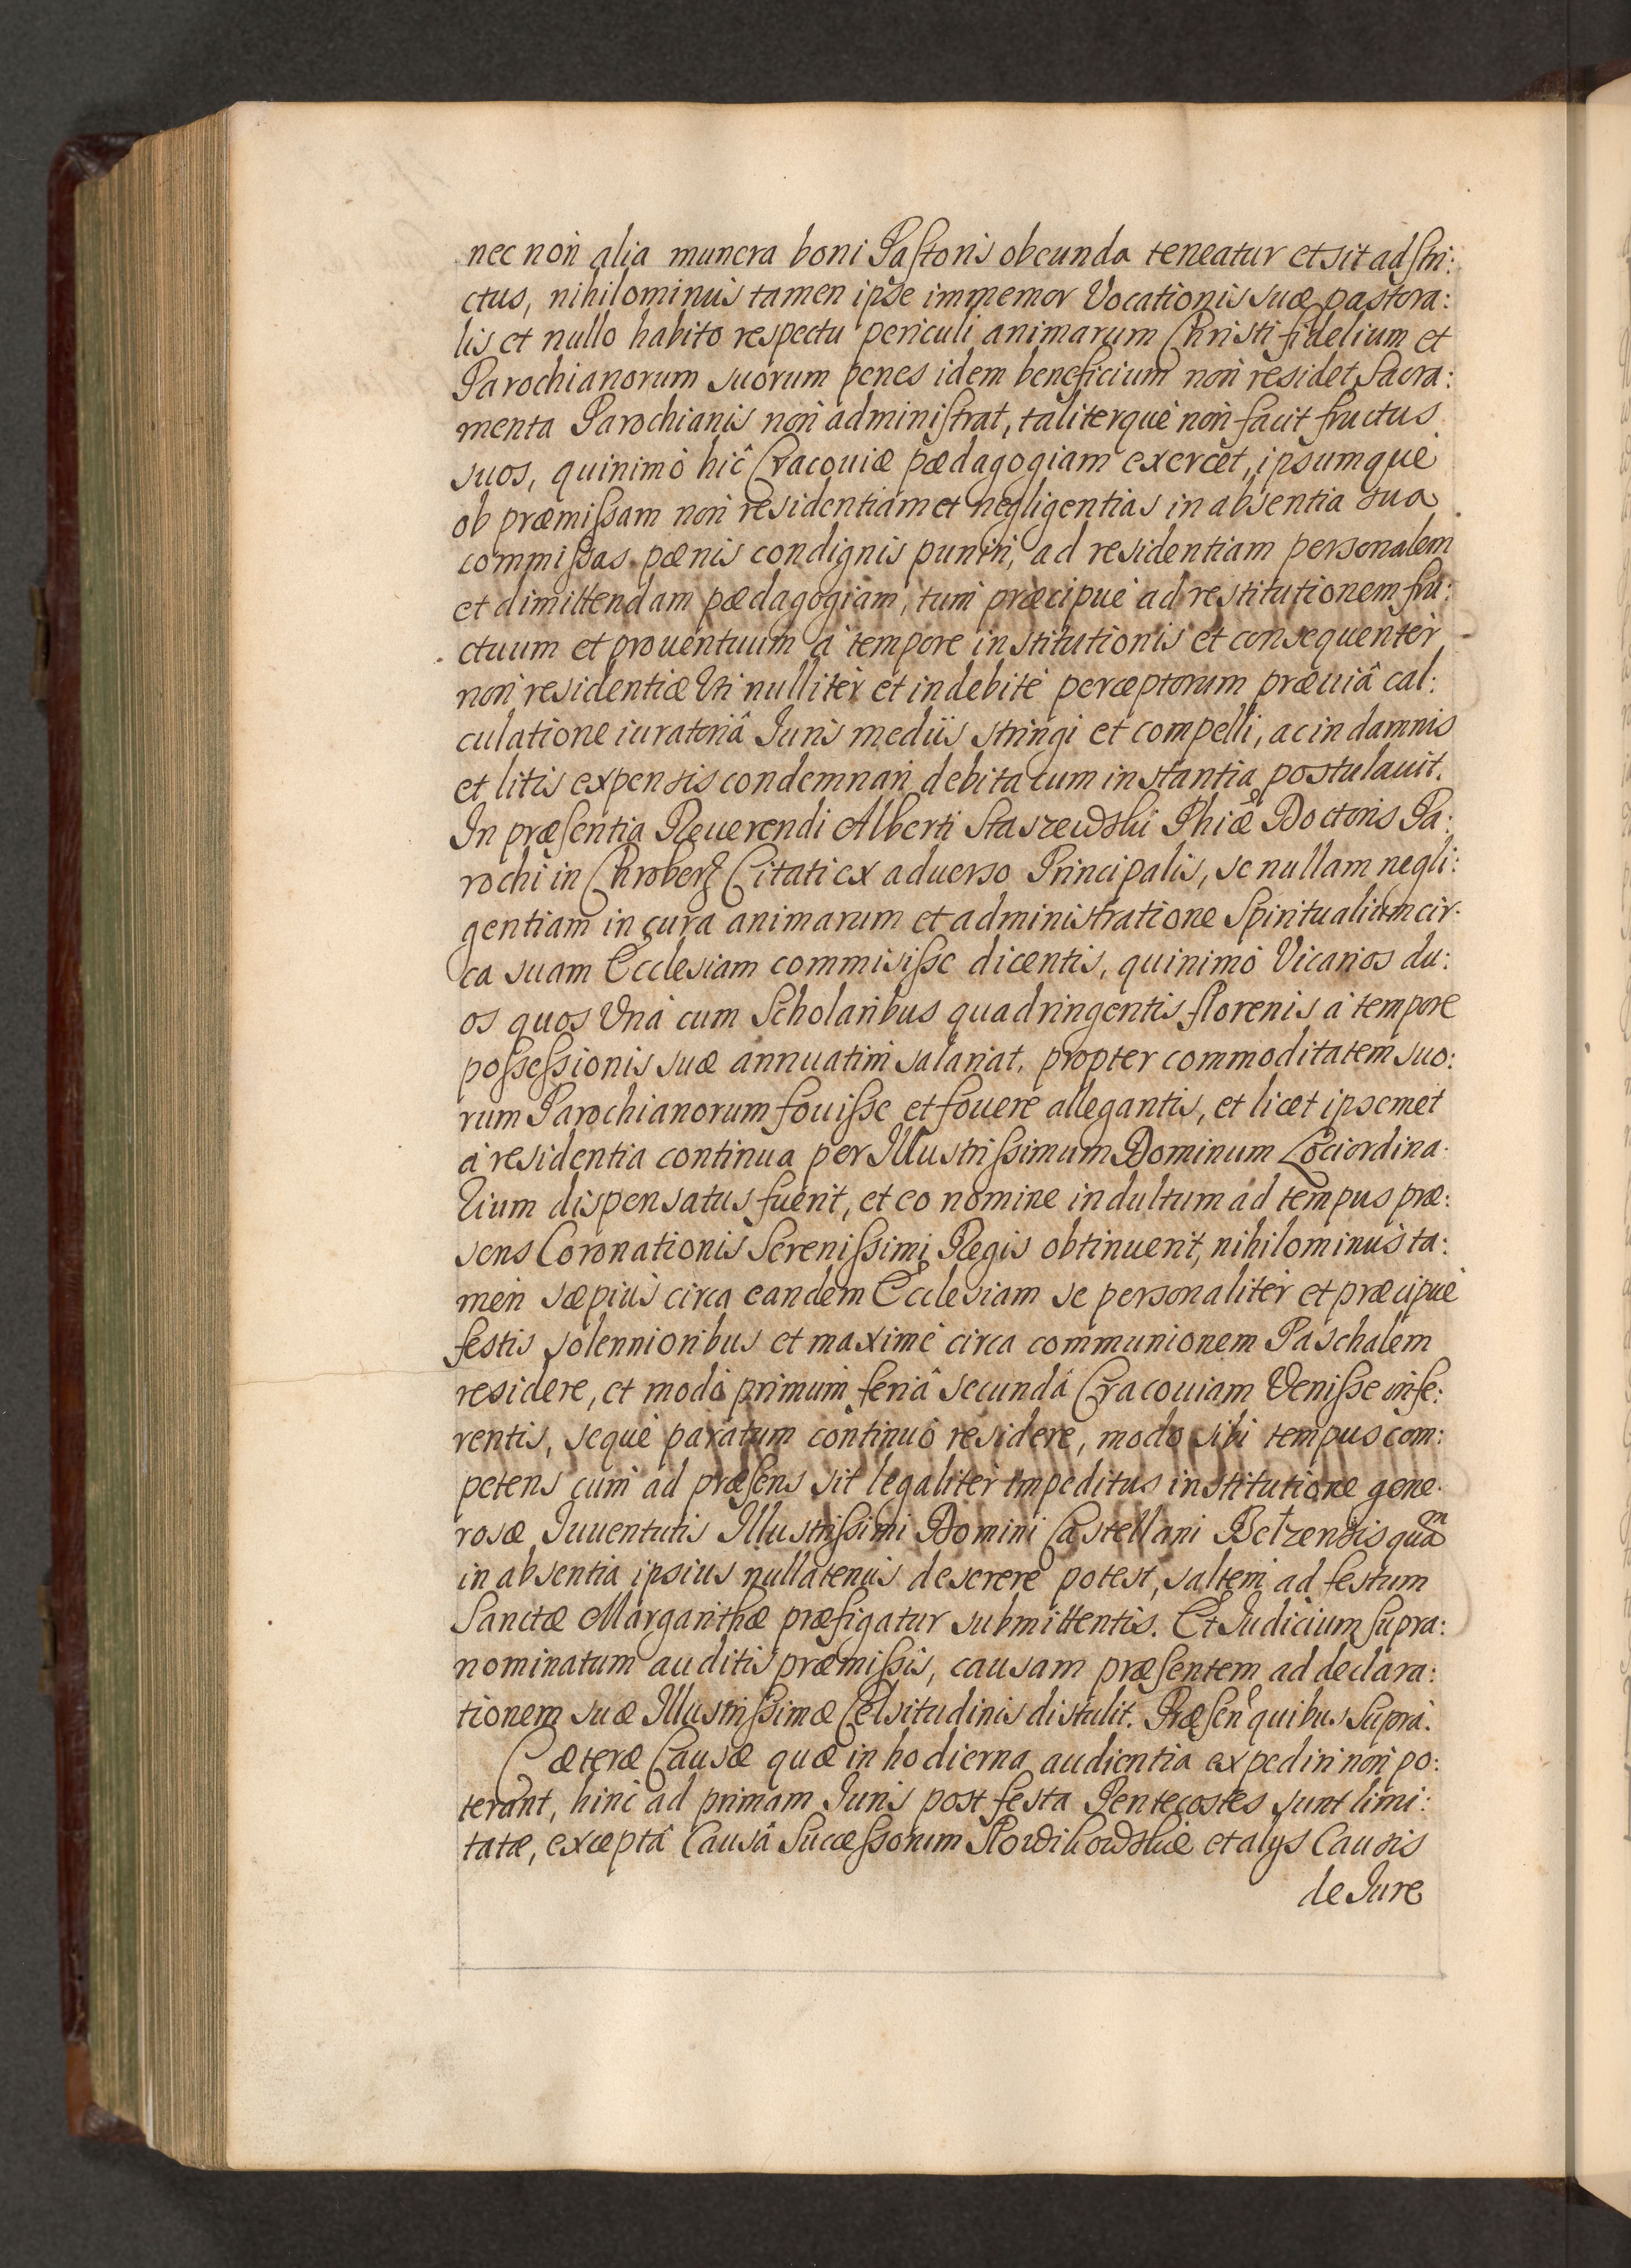 nec non alia munera boni Pastoris obeunda teneatur et sit adstri:
ctus, nihilominus tamen ipse immemor Vocationis suæ pastora:
lis et nullo habito respectu periculi animarum Christi fidelium et
Parochianorum suorum penes idem beneficium non residet, Sacra:
menta Parochianis non administrat, taliterque non facit fructus
suos, quinimò hîc Cracouiæ pædagogiam exercet, ipsumque
ob præmissam non residentiam et negligentias in absentia sua
commissas pænis condignis puniri, ad residentiam personalem
et dimittendam pædagogiam, tum præcipuè ad restitutionem fru:
ctuum et prouentuum à tempore institutionis et consequenter
non residentiæ Uti nulliter et indebitè perceptorum præuiâ cal:
culatione iuratoriâ Iuris mediis stringi et compelli, ac in damnis
et litis expensis condemnari debita cum instantia postulauit.
In præsentia Reuerendi Alberti Staszewski Phiæ Doctoris Pa:
rochi in Chroberz Citati ex aduerso Principalis, se nullam negli:
gentiam in cura animarum et administratione Spiritualium cir:
ca suam Ecclesiam commisisse dicentis, quinimò Vicarios du:
os quos Unà cum Scholaribus quadringentis florenis à tempore
possessionis suæ annuatim salariat, propter commoditatem suo:
rum Parochianorum fouisse et fouere allegantis, et licet ipsemet
à residentia continua per Illustrissimum Dominum Lociordina:
rium dispensatus fuerit, et eo nomine indultum ad tempus præ:
sens Coronationis Serenissimi Regis obtinuerit, nihilominus ta:
men sæpius circa eandem Ecclesiam se personaliter et præcipuè
festis solennioribus et maximè circa communionem Paschalem
residere, et modò primum feriâ secundâ Cracouiam Venisse infe:
rentis, seque paratum continuò residere, modo sibi tempus com:
petens cum ad præsens sit legaliter impeditus institutione gene:
rosæ Iuuentutis Illustrissimi Domini Castellani Bełzensis quam
in absentia ipsius nullatenus deserere potest, saltem ad festum
Sanctæ Margarithæ præfigatur submittentis. Et Iudicium supra:
nominatum auditis præmissis, causam præsentem ad declara:
tionem suæ Illustrissimæ Celsitudinis distulit. Præsen quibus supra.
Cæteræ Causæ quæ in hodierna audientia expediri non po:
terant, hinc ad primam Iuris post festa Pentecostes sunt limi:
tatæ, exceptâ Causâ Successorum Słowikowskie et alys Causis
de Iure